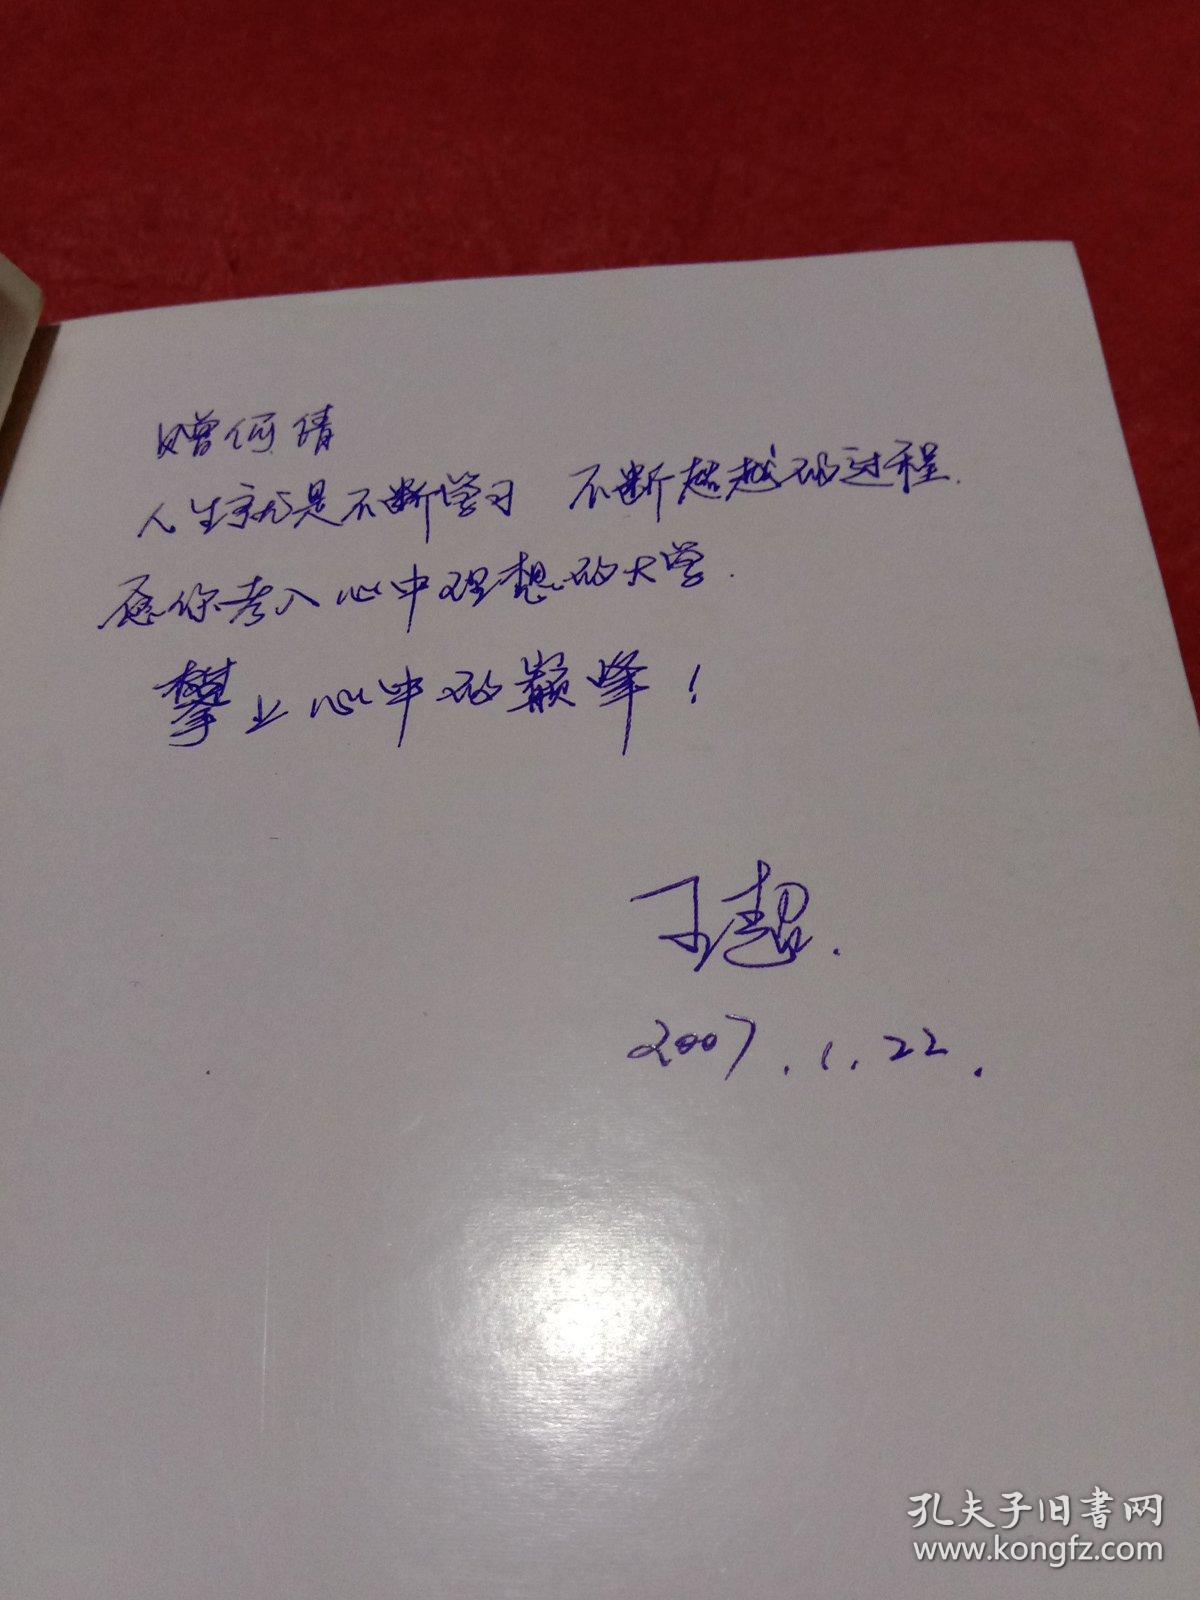 赠何倩
人生就是不断学习 不断超越的过程.
愿你考入心中理想的大学.
攀上心中的巅峰!
王超.
2007.1.22.
孔夫子旧书网
www.kongfz.com